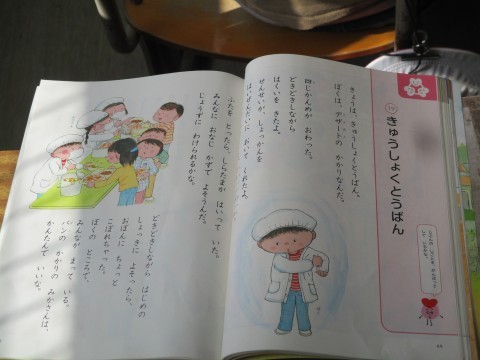 きゅうしょくとうばん
きょうは、きゅうしょくとうばん。
ぼくは、デザートの かかりなんだ。
四じかんめが おわった。
どきどきしながら
はくいを きたよ。
せんせいが、しょっかんを
はいぜんだいに おいて くれたよ。
ふたを とったら、しらたまが はいって いた。
みんなに おなじ かずで よそうんだ。
じょうずに わけられるかな。
どきどきしながら はじめの
しょっきに よそったら、
おぼんに ちょっと
こぼれちゃった。
ぼくの ところで、
みんなが まって いる。
パンの かかりの みかさんは、
かんたんで いいな。